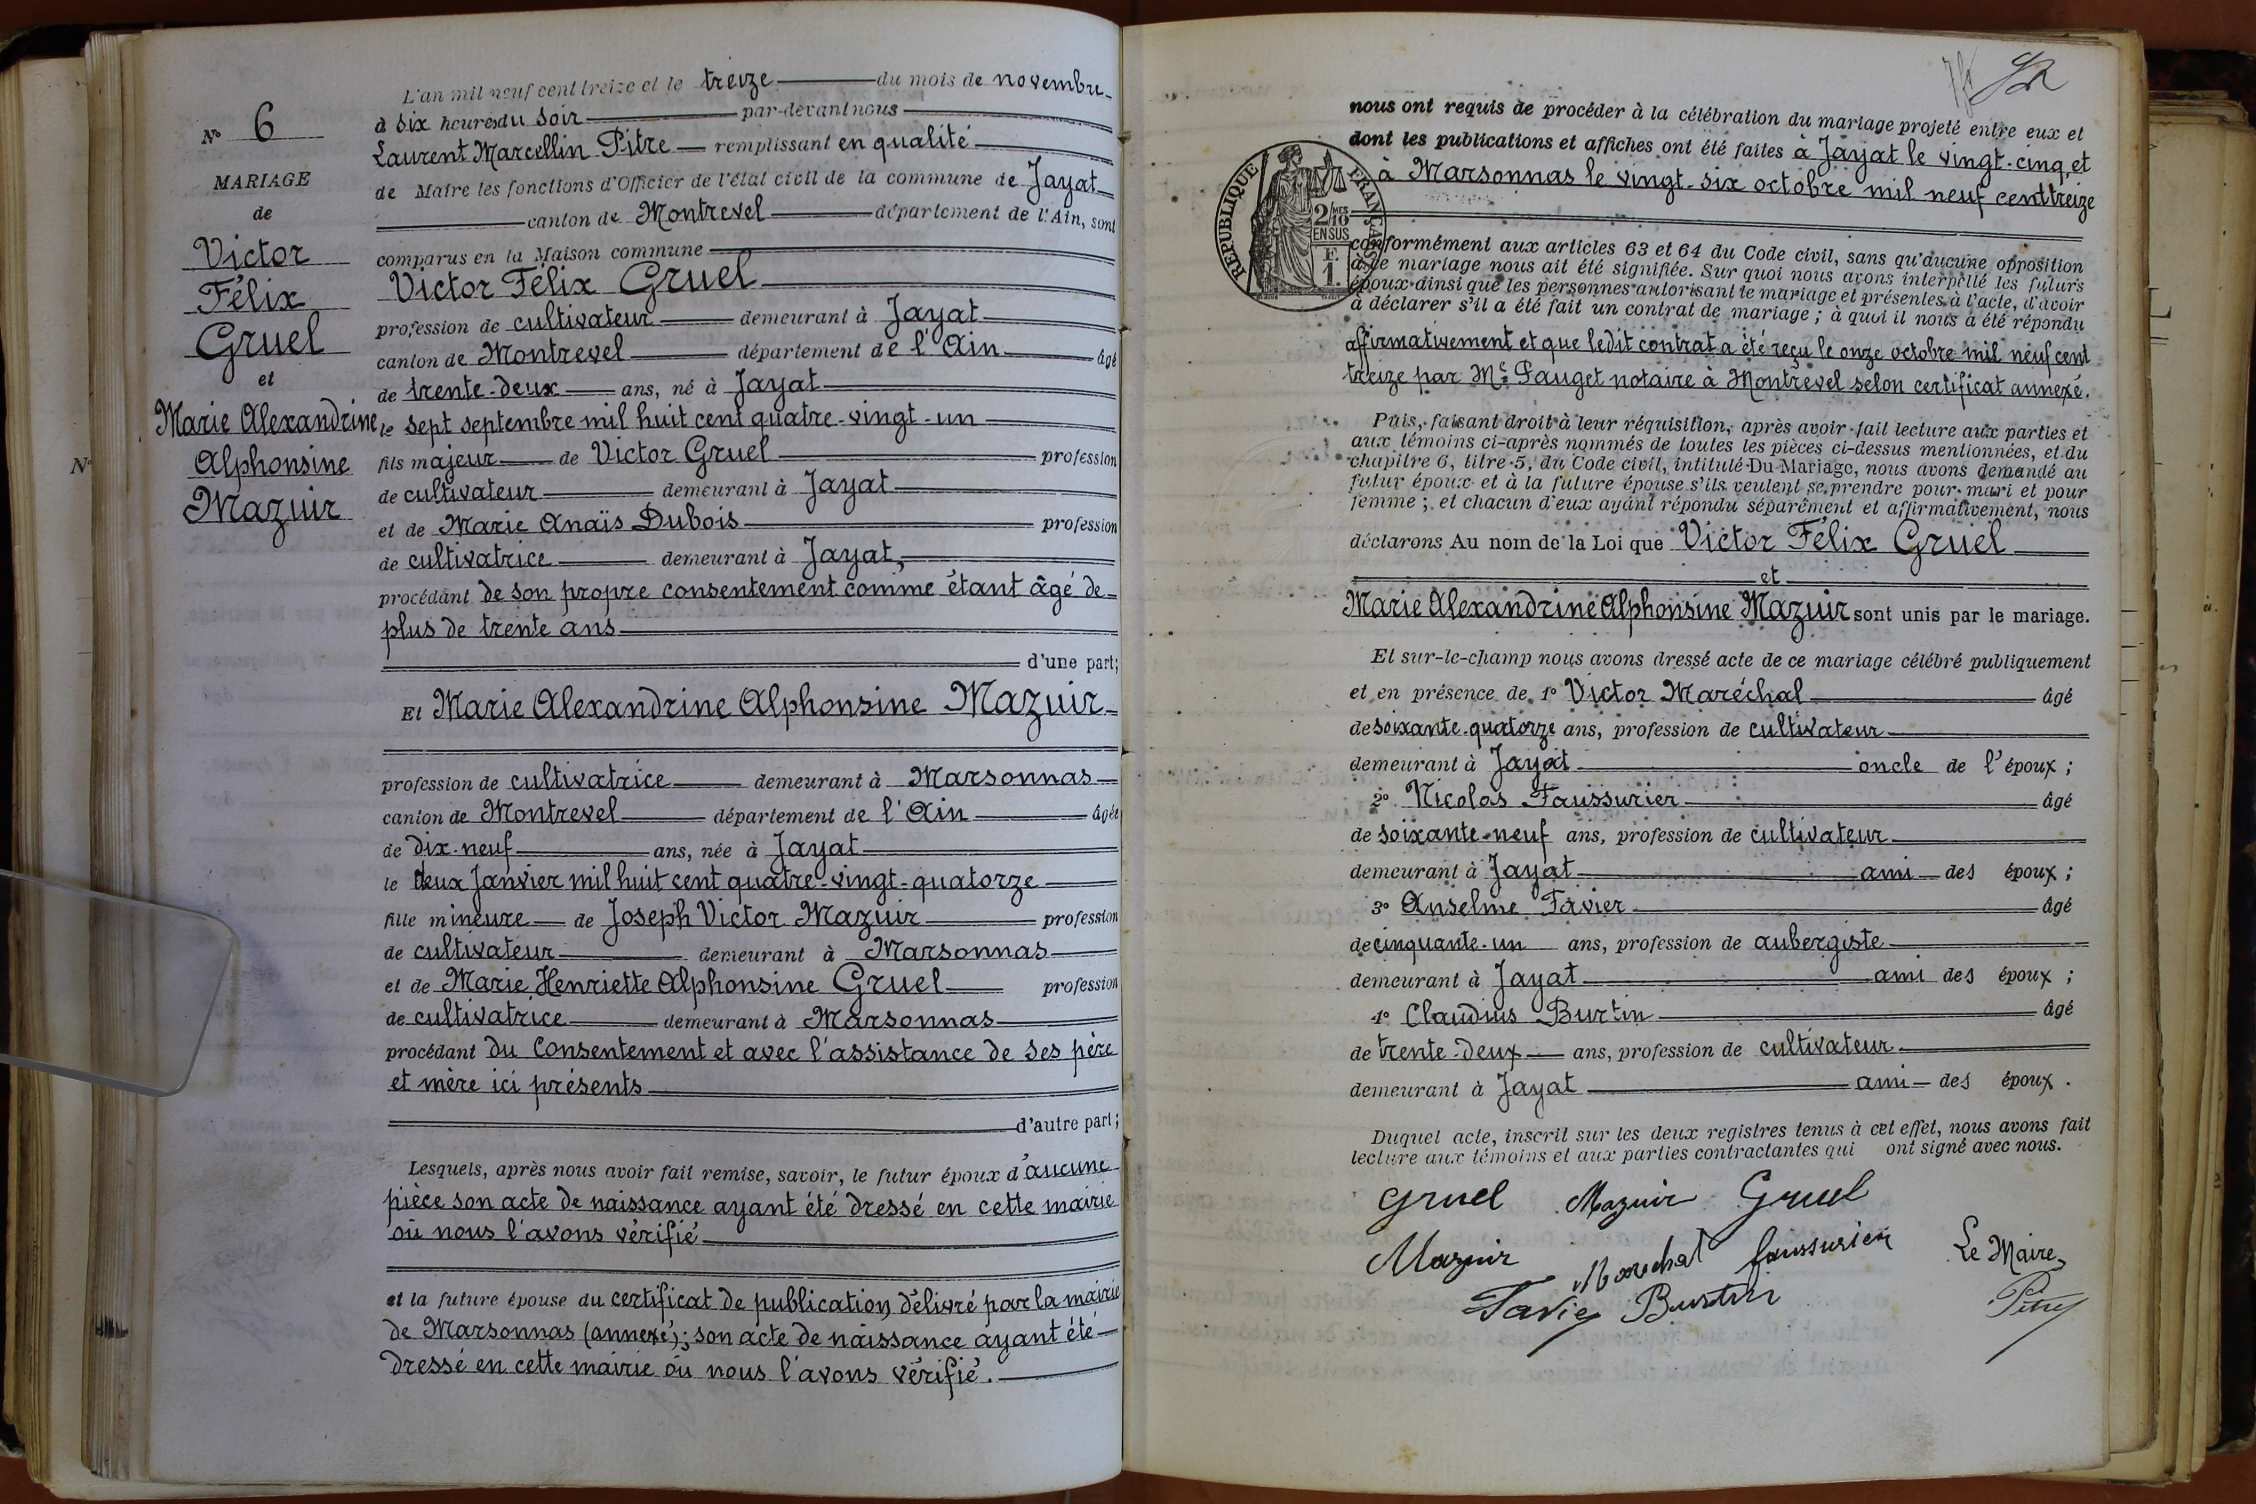 N° 6
MARIAGE
de
Victor
Félix
Gruel
et
Marie Alexandrine
Alphonsine
Mazuir
L'an mil neuf cent treize et le treize du mois de novembre
à six heures du soir par-devant nous
Laurent Marcellin Pitre remplissant en qualité
de Maire les fonctions d'Officier de l'état civil de la commune de Jayat
canton de Montrevel département de l'Ain, sont
comparus en la Maison commune
Victor Félix Gruel
profession de cultivateur demeurant à Jayat
canton de Montrevel département de l'Ain âgé
de trente-deux ans, né à Jayat
le sept septembre mil huit cent quatre-vingt-un
fils majeur de Victor Gruel profession
de cultivateur demeurant à Jayat
et de Marie Anaïs Dubois profession
de cultivatrice demeurant à Jayat,
procédant de son propre consentement comme étant âgé de
plus de trente ans
d'une part;
Et Marie Alexandrine Alphonsine Mazuir
profession de cultivatrice demeurant à Marsonnas
canton de Montrevel département de l'Ain âgée
de dix-neuf ans, née à Jayat
le deux Janvier mil huit cent quatre-vingt-quatorze
fille mineure de Joseph Victor Mazuir profession
de cultivateur demeurant à Marsonnas
et de Marie Henriette Alphonsine Gruel profession
de cultivatrice demeurant à Marsonnas
procédant du consentement et avec l'assistance de ses père
et mère ici présents
d'autre part;
Lesquels, après nous avoir fait remise, savoir, le futur époux d'aucune
pièce son acte de naissance ayant été dressé en cette mairie
où nous l'avons vérifié
et la future épouse du certificat de publication, délivré par la mairie
de Marsonnas (annexé); son acte de naissance ayant été
dressé en cette mairie où nous l'avons vérifié.
nous ont requis de procéder à la célébration du mariage projeté entre eux et
dont les publications et affiches ont été faites à Jayat le vingt-cinq, et
à Marsonnas le vingt-six octobre mil neuf cent treize
RÉPUBLIQUE FRANÇAISE
2/10 MES
EN SUS
F.
1.
conformément aux articles 63 et 64 du Code civil, sans qu'aucune opposition
à ce mariage nous ait été signifiée. Sur quoi nous avons interpellé les futurs
époux ainsi que les personnes autorisant le mariage et présentes à l'acte, d'avoir
à déclarer s'il a été fait un contrat de mariage; à quoi il nous a été répondu
affirmativement et que ledit contrat a été reçu le onze octobre mil neuf cent
treize par Me Pauget notaire à Montrevel selon certificat annexé.
Puis, faisant droit à leur réquisition, après avoir fait lecture aux parties et
aux témoins ci-après nommés de toutes les pièces ci-dessus mentionnées, et du
chapitre 6, titre 5, du Code civil, intitulé Du Mariage, nous avons demandé au
futur époux et à la future épouse s'ils veulent se prendre pour mari et pour
femme; et chacun d'eux ayant répondu séparément et affirmativement, nous
déclarons Au nom de la Loi que Victor Félix Gruel
et
Marie Alexandrine Alphonsine Mazuir sont unis par le mariage.
Et sur-le-champ nous avons dressé acte de ce mariage célébré publiquement
et en présence de 1° Victor Maréchal âgé
de soixante-quatorze ans, profession de cultivateur
demeurant à Jayat oncle de l'époux;
2° Nicolas Faussurier âgé
de soixante-neuf ans, profession de cultivateur
demeurant à Jayat ami des époux;
3° Anselme Favier âgé
de cinquante-un ans, profession de aubergiste
demeurant à Jayat ami des époux;
4° Claudius Burtin âgé
de trente-deux ans, profession de cultivateur
demeurant à Jayat ami des époux.
Duquel acte, inscrit sur les deux registres tenus à cet effet, nous avons fait
lecture aux témoins et aux parties contractantes qui ont signé avec nous.
Gruel Mazuir Gruel
Mazuir Marechal faussurier Le Maire,
Favier Burtin Pitre